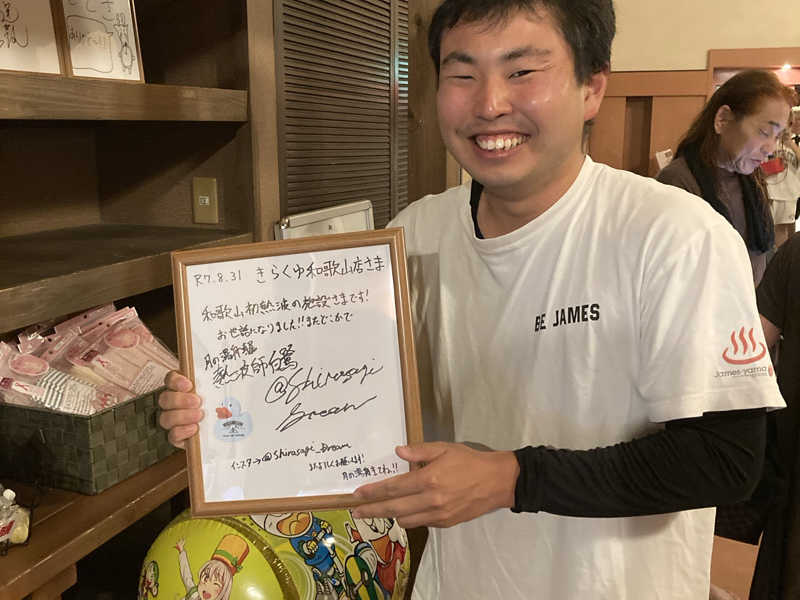 R7.8.31 きらくゆ和歌山店さま
和歌山初熱波の施設さまです!
お世話になりました!!またどこかで
熱波師白鷺
@Shirasagi
Dream
インスタ→@shirasagi_Dream
よろしくお願いします!
BE JAMES
James-yama